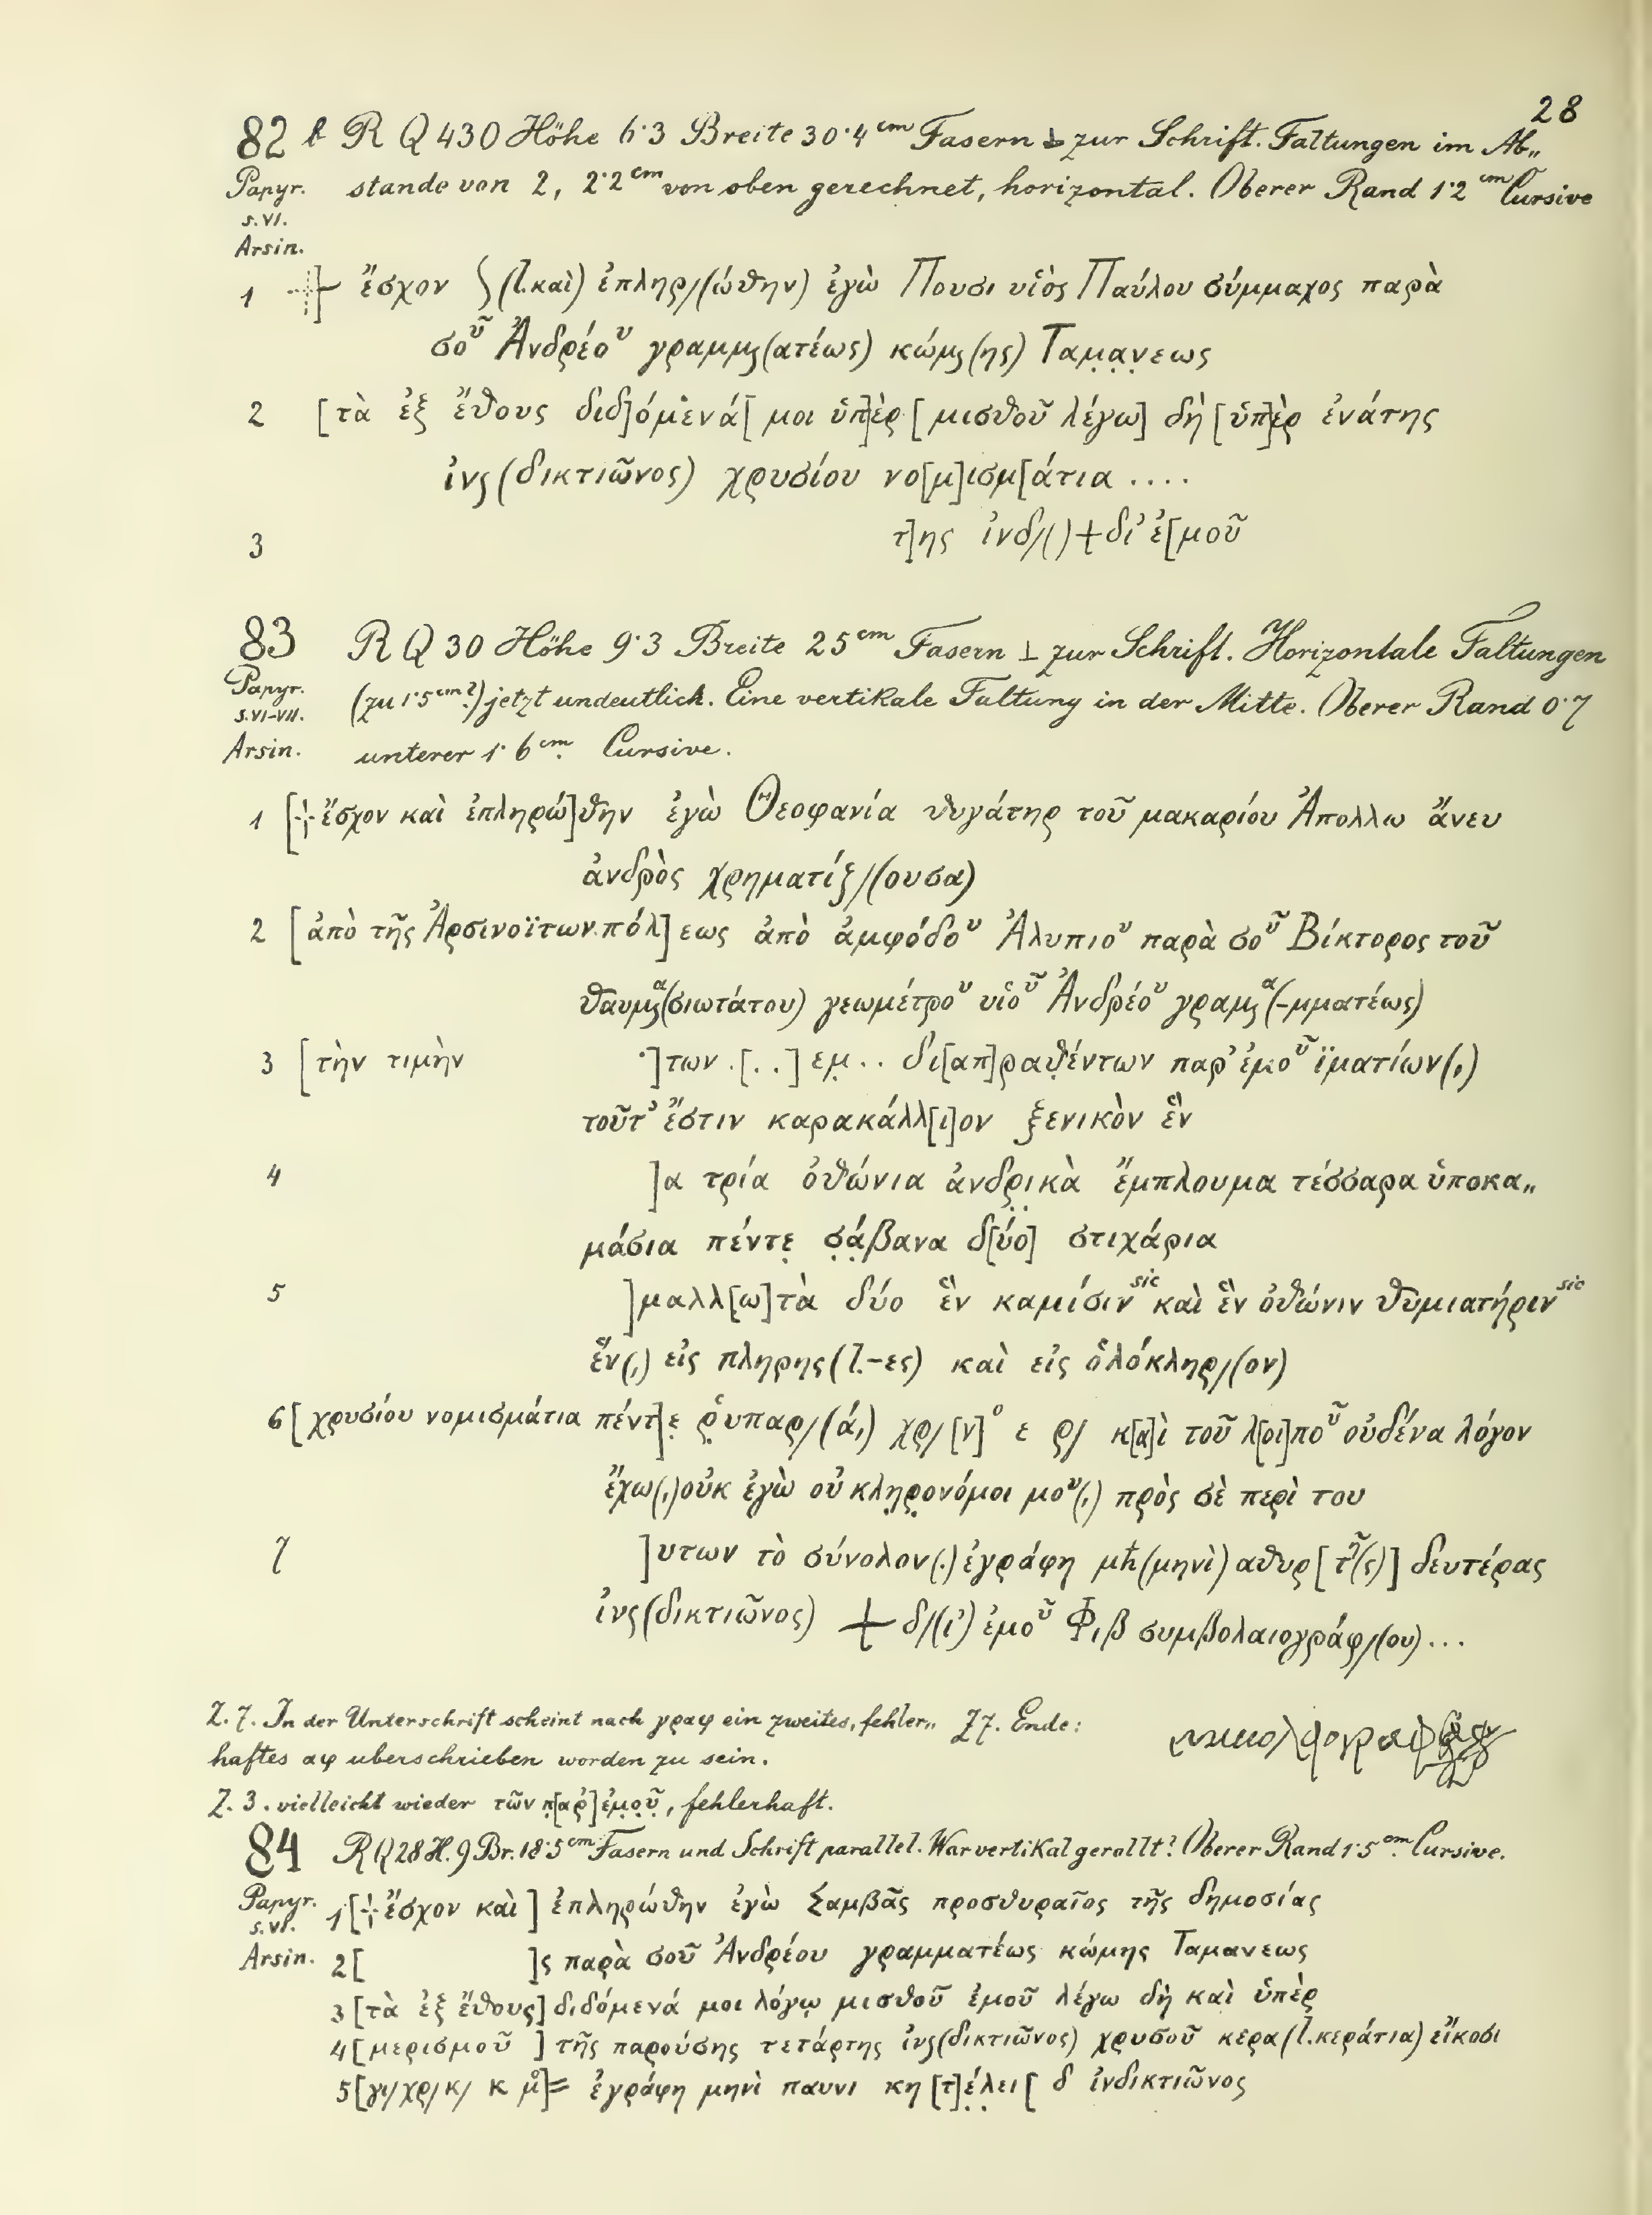 28
82 R Q 430 Höhe 6·3 Breite 30·4 cm Fasern ⊥ zur Schrift. Faltungen im Ab„
Papyr. stande von 2, 2·2 cm von oben gerechnet, horizontal. Oberer Rand 1·2 cm Cursive
s. VI.
Arsin.
1 ἔσχον (l. καὶ) ἐπληρ/(ώθην) ἐγὼ Πουσι υἱὸς Παύλου σύμμαχος παρὰ
σοῦ Ἀνδρέου γραμμς(ατέως) κώμς(ης) Ταμạṇεως
2 [τὰ ἐξ ἔθους διδ]όμενά[ μοι ὑπ]ὲρ [μισθοῦ λέγω] δὴ [ὑπ]ὲρ ἐνάτης
ἰνς(δικτιῶνος) χρυσίου νο[μ]ισμ[άτια ....
3 τ]ης ἰνδ/() + δι' ἐ[μοῦ
83 R Q 30 Höhe 9·3 Breite 25 cm Fasern ⊥ zur Schrift. Horizontale Faltungen
Papyr. (zu 1·5 cm?) jetzt undeutlich. Eine vertikale Faltung in der Mitte. Oberer Rand 0·7
s. VI-VII.
Arsin. unterer 1·6 cm. Cursive.
1 [⳨ ἔσχον καὶ ἐπληρώ]θην ἐγὼ Θεοφανία θυγάτηρ τοῦ μακαρίου Ἀπολλω ἄνευ
ἀνδρὸς χρηματίζ/(ουσα)
2 [ἀπὸ τῆς Ἀρσινοϊτων πόλ]εως ἀπὸ ἀμφόδου Ἀλυπιου παρὰ σοῦ Βίκτορος τοῦ
θαυμςα(σιωτάτου) γεωμέτρου υἱοῦ Ἀνδρέου γραμςα(-μματέως)
3 [τὴν τιμὴν ·]των .[..]εμ̣.. δι[απ]ραθ̣έντων παρ' ἐμοῦ ϊματίων(,)
τοῦτ' ἔστιν καρακάλλ[ι]ον ξενικὸν ἓν
4 ]α τρία ὀθώνια ἀνδρ̣ικὰ ἔμπλουμα τέσσαρα ὑποκα„
μάσια πέντε̣ σ̣ά̣βανα δ[ύο] στιχάρια
5 ]μαλλ[ω]τὰ δύο ἓν καμίσιν sic καὶ ἓν ὀθώνιν θυμιατήριν sic
ἕν(,) εἰς πληρης (l. -ες) καὶ εἰς ὁλόκληρ/(ον)
6 [χρυσίου νομισμάτια πέντ]ε̣ ῥ̣υπαρ/(ά,) χρ/[ν]ο ε ρ/ κ[α]ὶ τοῦ λ[οι]ποῦ οὐδένα λόγον
ἔχω(,) οὐκ ἐγὼ οὐ κλη̣ρ̣ονόμοι μου(,) πρὸς σὲ περὶ του
7 ]υτων τὸ σύνολον(.) ἐγράφη μħ(μηνὶ) αθυρ [τῆ(ς)] δευτέρας
ἰνς(δικτιῶνος) + δ/(ι') ἐμοῦ Φιβ συμβολαιογράφ/(ου)...
Z. 7. In der Unterschrift scheint nach γραφ ein zweites, fehler„ Z 7. Ende:
haftes αφ uberschrieben worden zu sein.
Z. 3. vielleicht wieder τῶν π̣[αρ']ἐμ̣ο̣ῦ̣, fehlerhaft.
84 R Q 28 H. 9 Br. 18·5 cm Fasern und Schrift parallel. War vertikal gerollt? Oberer Rand 1·5 cm. Cursive.
Papyr.
s. VI.
1 [⳨ ἔσχον καὶ ] ἐπληρώθην ἐγὼ Σαμβᾶς προσθυραῖος τῆς δημοσίας
Arsin. 2 [ ]ς παρὰ σοῦ Ἀνδρέου γραμματέως κώμης Ταμανεως
3 [τὰ ἐξ ἔθους] διδόμενά μοι λόγῳ μισθοῦ ἐμοῦ λέγω δὴ καὶ ὑπὲρ
4 [μερισμοῦ ] τῆς παρούσης τετάρτης ἰνς(δικτιῶνος) χρυσοῦ κερα (l. κεράτια) εἴκοσι
5 [γι/ χρ/ κ/ κ μ̊]= ἐγράφη μηνὶ παυνι κη [τ]έ̣λ̣ει [ δ ἰνδικτιῶνος